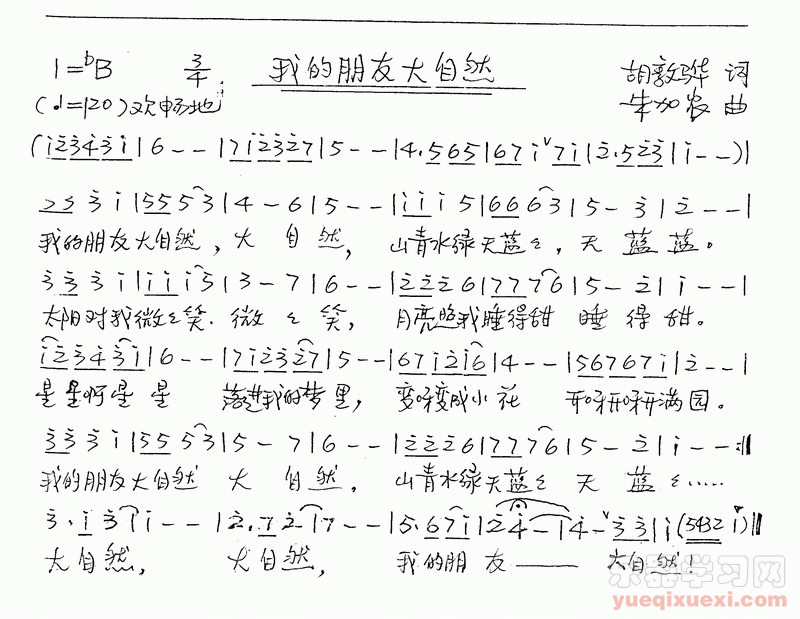 1=♭B 3/4 我的朋友大自然 胡敦骅 词
(♩=120)欢畅地 朱加农 曲
(i̇2̇3̇4̇3̇i̇|6--|7i̇2̇3̇2̇7|5--|4·565|67i̇ˇ7i̇|2̇·52̇3̇|i̇--)|
3̇3̇ 3̇ i̇|5553|4-6|5--|i̇i̇i̇5|6663|5-3|2--|
我的朋友大自然，大 自 然， 山青水绿天蓝蓝，天 蓝 蓝。
3̇3̇3̇i̇|i̇i̇i̇5|3-7|6--|2̇2̇2̇6|7776|5-2̇|i̇--|
太阳对我微微笑．微 微 笑， 月亮照我睡得甜 睡 得 甜。
i̇2̇3̇4̇3̇i̇|6--|7i̇2̇3̇2̇7|5--|67i̇2̇i̇6|4--|56767i̇|2̇--|
星星啊星 星 落进我的梦里， 变呀变成小花 开呀开呀开满园。
3̇3̇3̇i̇|5553|5-7|6--|2̇2̇2̇6|7776|5-2̇|i̇--:‖
我的朋友大自然 大 自然． 山青水绿天蓝蓝 天 蓝 蓝……
3̇·i̇3̇|i̇--|2̇·72̇|7--|5·67i̇|2̇4̇-|4̇-ˇ3̇3̇|i̇(5432 i̇)‖
大自然， 大自然， 我的朋 友—— 大自然！
乐器学习网
yueqixuexi.com